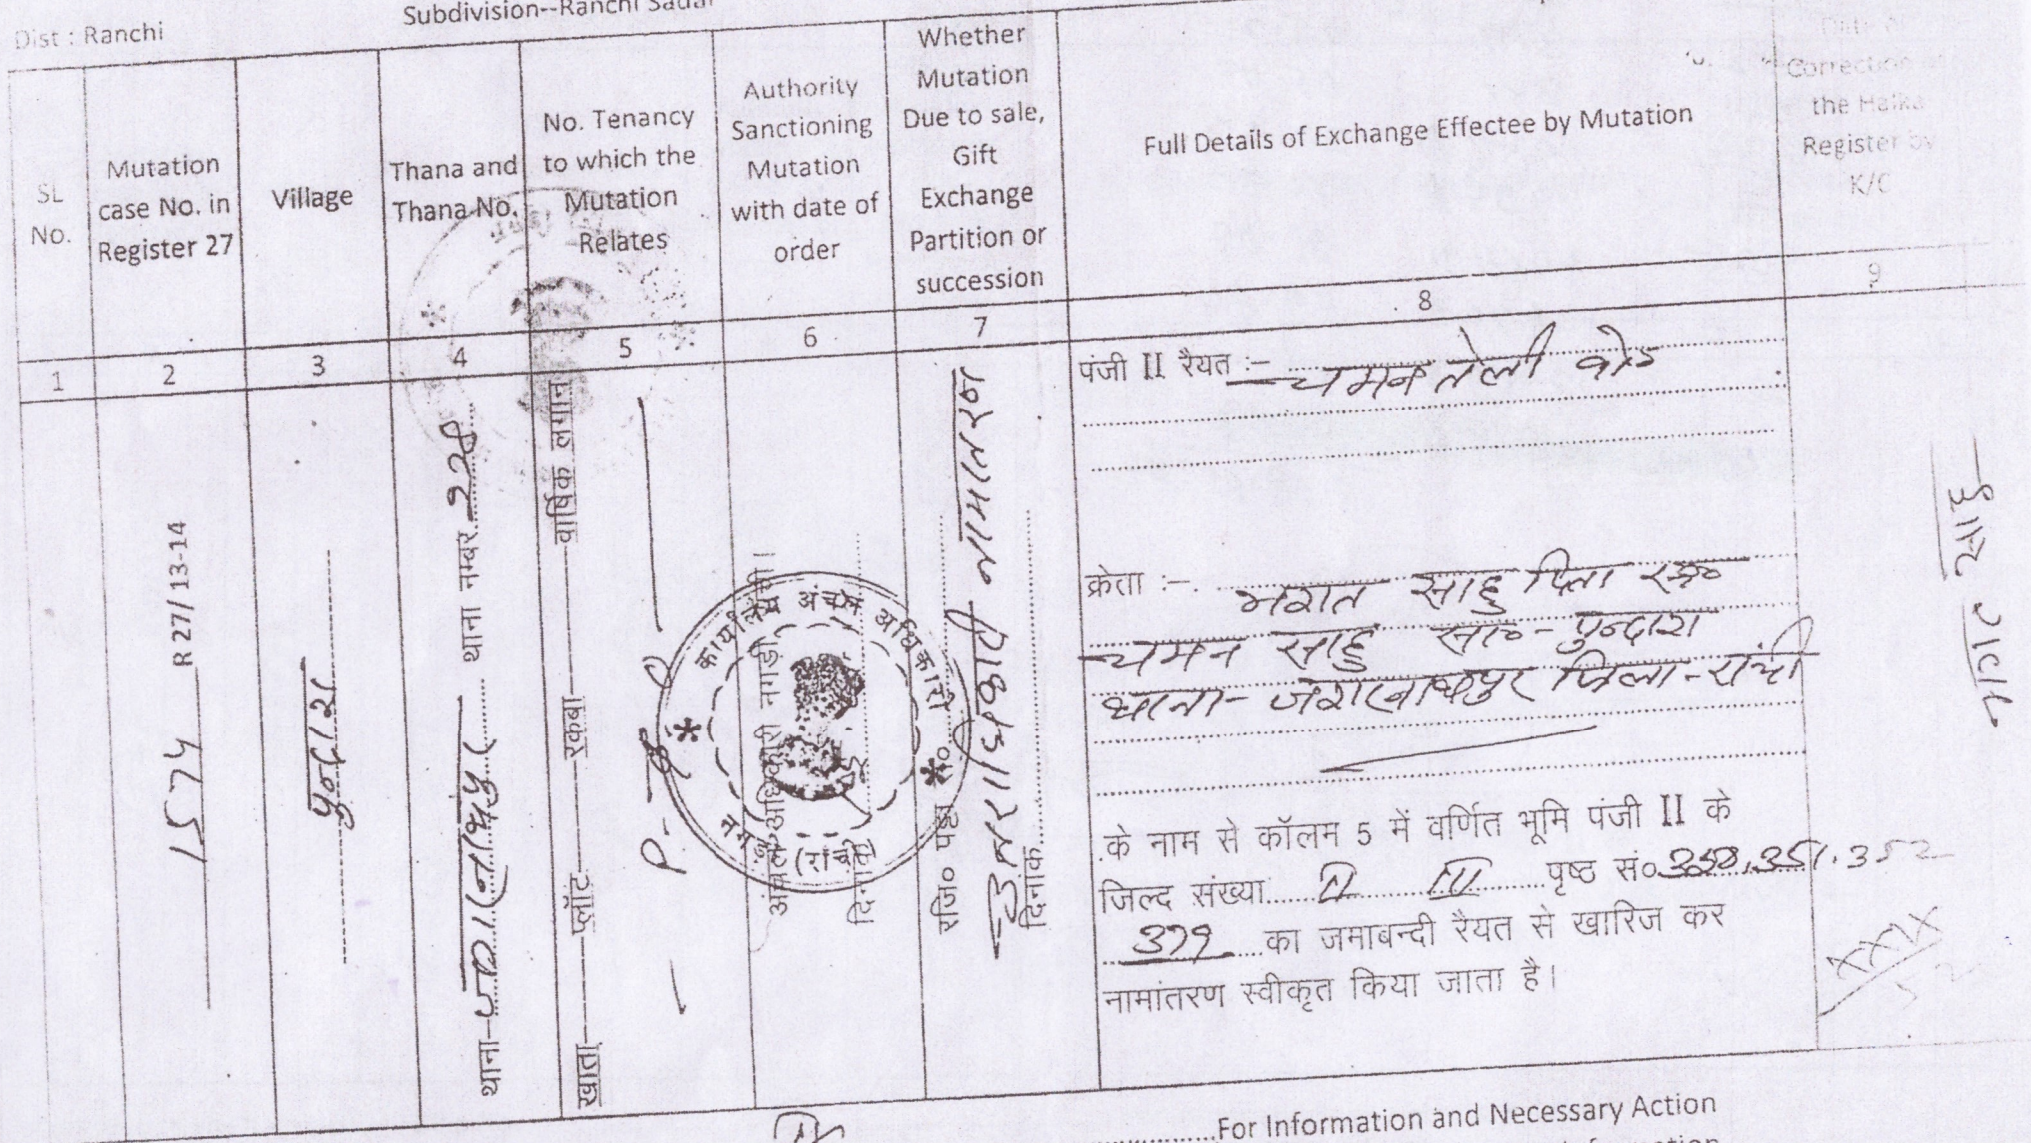 Dist : Ranchi
Subdivision--Ranchi Sadar
SL No.
Mutation case No. in Register 27
Village
Thana and Thana No.
No. Tenancy to which the Mutation Relates
Authority Sanctioning Mutation with date of order
Whether Mutation Due to sale, Gift Exchange Partition or succession
Full Details of Exchange Effectee by Mutation
Correction
the Halka
Register by
K/C
1
2
3
4
5
6
7
8
9
1574 R 27/ 13-14
पुन्दाग
थाना- थाना नम्बर 228
खाता प्लॉट रकबा वार्षिक लगान
अंचल अधिकारी नगड़ी।
दिनांक
कार्यालय अंचल अधिकारी
(रांची)
रजि० पट्टा सं०
उत्तराधिकारी नामांतरण
दिनांक
पंजी II रैयत :- चमन तेली वो०
क्रेता :- भरत साहु पिता स्व०
चमन साहु सा०- पुन्दाग
थाना- जगरनाथपुर जिला-रांची
के नाम से कॉलम 5 में वर्णित भूमि पंजी II के
जिल्द संख्या II III पृष्ठ सं० 350, 351, 352
379 का जमाबन्दी रैयत से खारिज कर
नामांतरण स्वीकृत किया जाता है।
For Information and Necessary Action